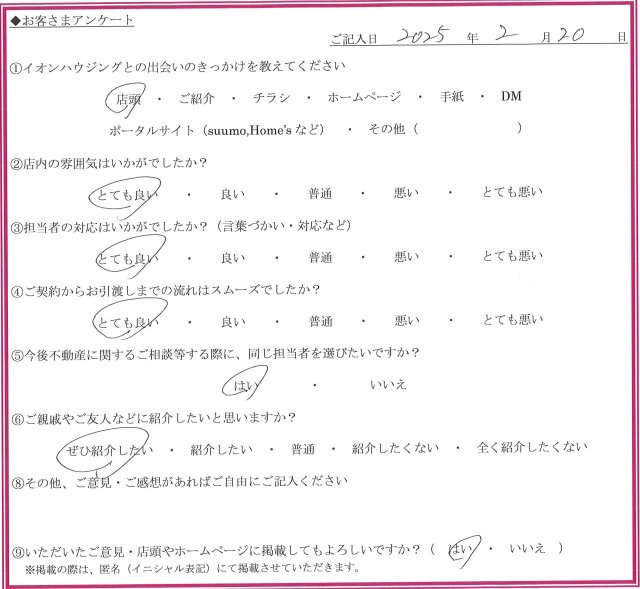 ◆お客さまアンケート
ご記入日 2025 年 2 月 20 日
①イオンハウジングとの出会いのきっかけを教えてください
店頭 ・ ご紹介 ・ チラシ ・ ホームページ ・ 手紙 ・ DM
ポータルサイト（suumo,Home's など） ・ その他（ ）
②店内の雰囲気はいかがでしたか？
とても良い ・ 良い ・ 普通 ・ 悪い ・ とても悪い
③担当者の対応はいかがでしたか？（言葉づかい・対応など）
とても良い ・ 良い ・ 普通 ・ 悪い ・ とても悪い
④ご契約からお引渡しまでの流れはスムーズでしたか？
とても良い ・ 良い ・ 普通 ・ 悪い ・ とても悪い
⑤今後不動産に関するご相談等する際に、同じ担当者を選びたいですか？
はい ・ いいえ
⑥ご親戚やご友人などに紹介したいと思いますか？
ぜひ紹介したい ・ 紹介したい ・ 普通 ・ 紹介したくない ・ 全く紹介したくない
⑧その他、ご意見・ご感想があればご自由にご記入ください
⑨いただいたご意見・店頭やホームページに掲載してもよろしいですか？（ はい ・ いいえ ）
※掲載の際は、匿名（イニシャル表記）にて掲載させていただきます。